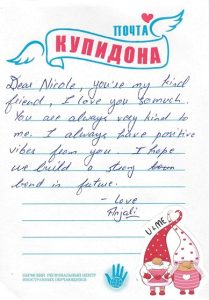 ПОЧТА
КУПИДОНА
Dear Nicole, you're my kind
friend, I love you so much.
You are always very kind to
me. I always have positive
vibes from you I hope
we build a strong
bond in future.
- Love
Anjali
U & ME
ПЕРМСКИЙ РЕГИОНАЛЬНЫЙ ЦЕНТР
ИНОСТРАННЫХ ОБУЧАЮЩИХСЯ